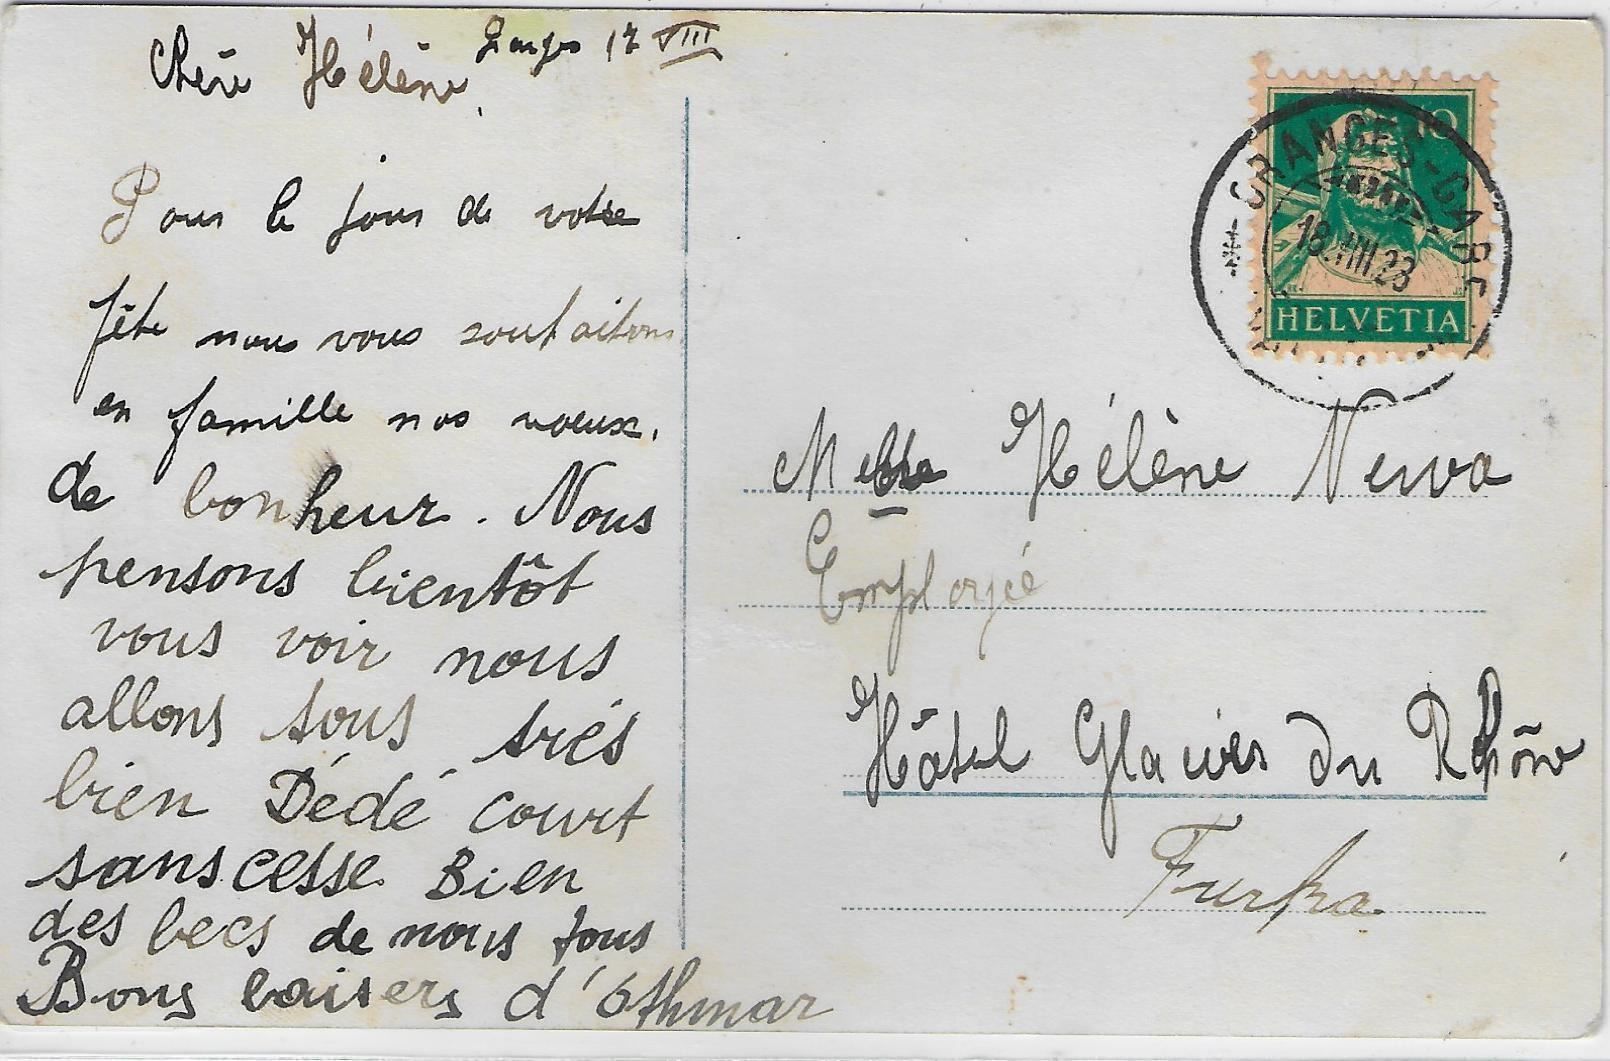 Chère Hélène, Granges 17 VIII
Pour le jour de votre
fête nous vous souhaitons
en famille nos voeux.
de bonheur. Nous
pensons bientôt
vous voir nous
allons tous très
bien Dédé court
sans cesse Bien
des becs de nous tous
Bons baisers d'Othmar
10
GRANGES-GARE
18.VIII.23
HELVETIA
Melle Hélène
Employée
Hôtel Glacier du Rhône
Furka